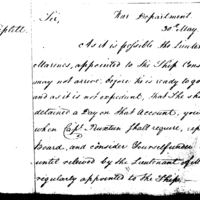 iplett
Sir,
War Department.
30th May.
As it is possible the Lieuten
Marines, appointed to the Ship Cons
may not arrive before he is ready to go
and as it is not expedient, that She sh
detained a Day on that Account, you
when Capt. Truxtun shall require, rep
board, and consider Yourself under
until relieved by the Lieutenant of M
regularly appointed to the Ship.